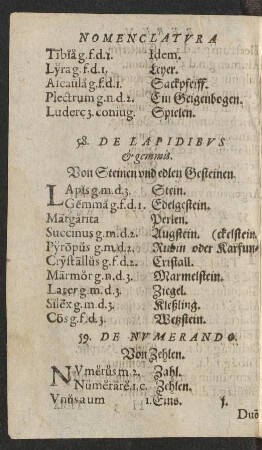 NOMENCLATVRA
Tibĭă g.f.d.1. Idem.
Lўra g.f.d.1. Leyer.
Ascaulă g.f.d.1. Sackpfeiff.
Plectrum g.n.d.2. Ein Geigenbogen.
Ludere 3. coniug. Spielen.
58. DE LAPIDIBVS
& gemmis.
Von Steinen vnd edlen Gesteinen.
LApis g.m.d.3. Stein.
Gēmmă g.f.d.1. Edelgestein.
Mārgărīta Perlen.
Succinus g.m.d.2. Augstein. (ckelstein.
Pўrōpŭs g.m.d.2. Rubin oder Karfun-
Crўſtallŭs g.f.d.2. Cristall.
Mārmŏr g.n.d.3. Marmelstein.
Later g.m.d.3. Ziegel.
Silĕx g.m.d.3. Kißling.
Cōs g.f.d.3. Wetzstein.
59. DE NVMERANDO.
Von Zehlen.
NVmĕrŭs m.2. Zahl.
Nŭmĕrārĕ 1.c. Zehlen.
Vnŭs a um I. Eins. 1.
Duŏ